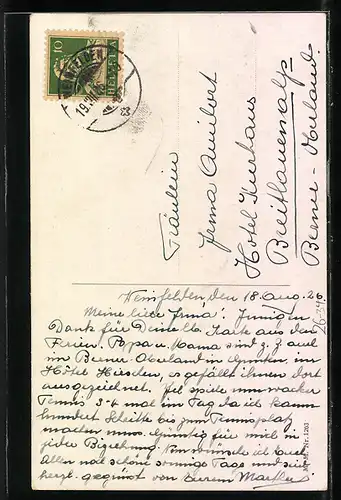 10
HELVETIA
Fräulein
Irma
Hotel Kurhaus
Breitlauenalp
Berner-Oberland.
Weinfelden, den 18. Aug. 26
Meine liebe Irma! Innigen
Dank für Deine lb. Karte aus den
Ferien. Papa u. Mama sind z. Z. auch
im Berner-Oberland in Gunten, im
Hôtel Hirschen, es gefällt ihnen dort
ausgezeichnet. Ich spiele nun wacker
Tennis 3-4 mal im Tag da ich kaum
hundert Schritte bis zum Tennisplatz
machen muss. Günstig für mich in
jeder Beziehung. Nun wünsche ich Euch
Allen noch schöne sonnige Tage und seid
herzl. gegrüsst von Eurem